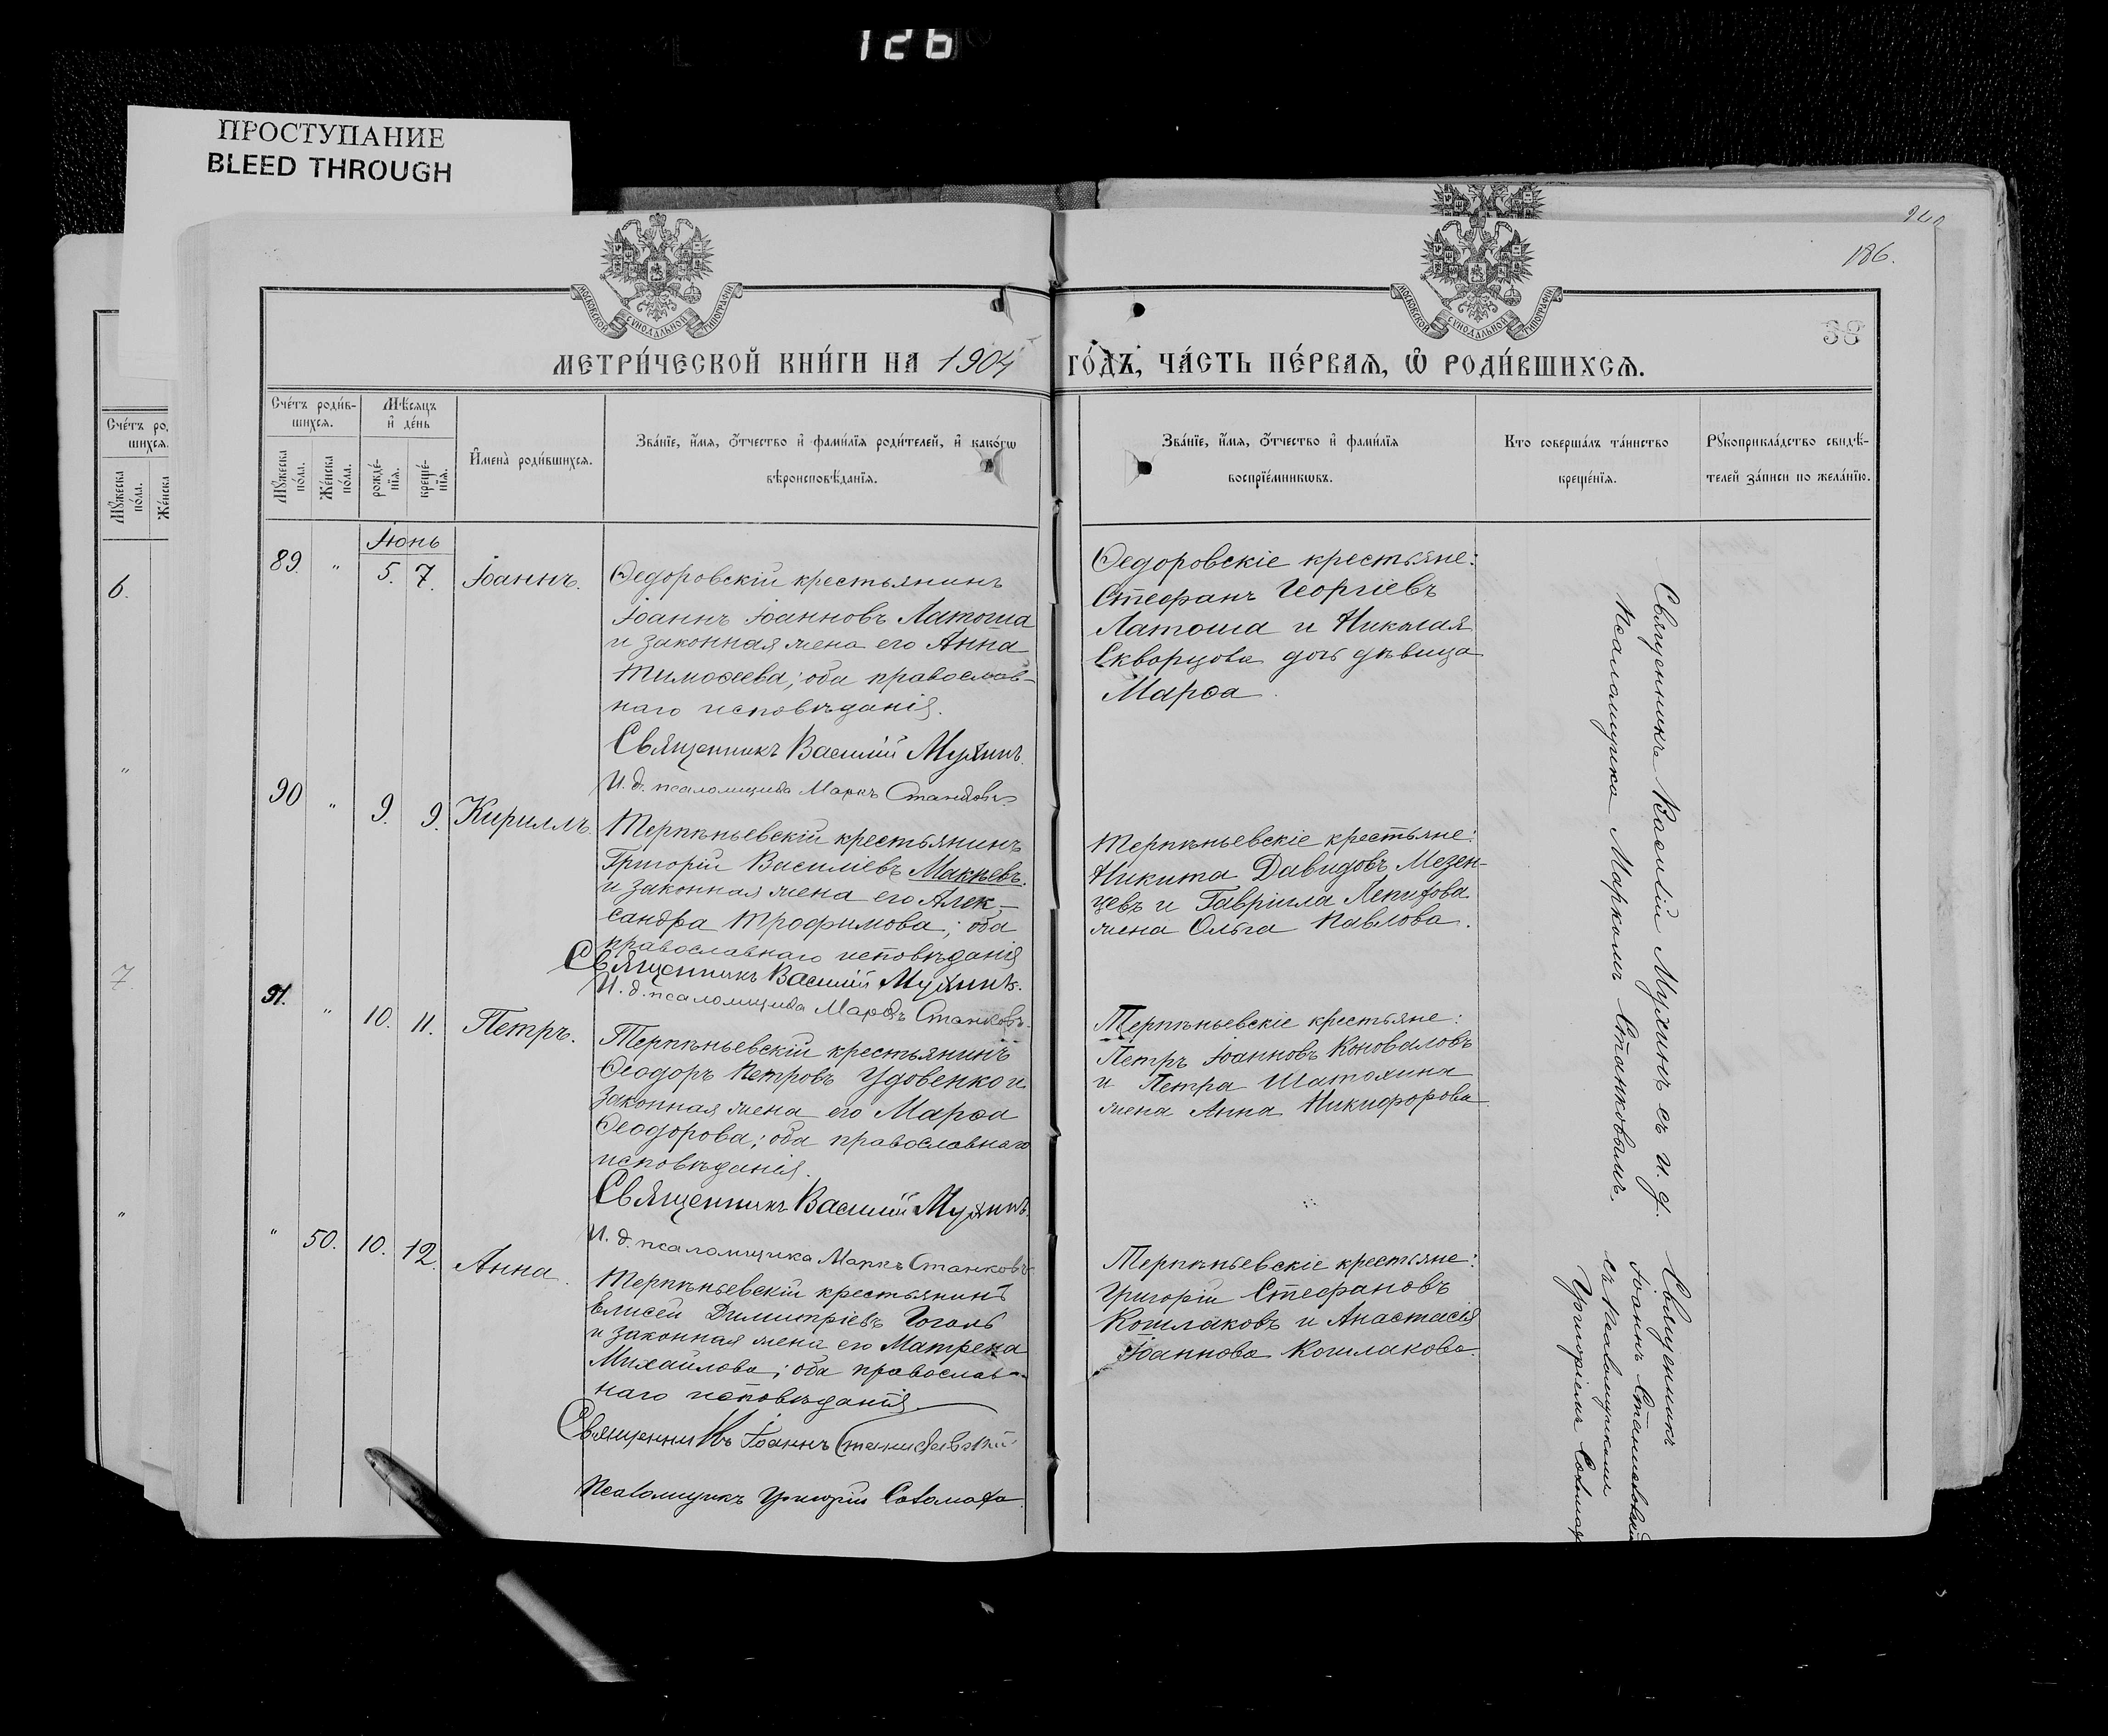 126
ПРОСТУПАНИЕ
BLEED THROUGH
186.
МОСКОВСКОЙ СѴНОДАЛЬНОЙ ТИПОГРАФІИ
МОСКОВСКОЙ СѴНОДАЛЬНОЙ ТИПОГРАФІИ
МЕТРИ́ЧЕСКОЙ КНИ́ГИ НА 1904 ГО́ДЪ, ЧА́СТЬ ПЕ́РВАѦ, Ѡ҆ РОДИ́ВШИХСѦ.
Сче́тъ ро
шихсѧ.
Мꙋжеска по́ла.
Же́нска
6.
"
7.
"
Сче́тъ роди́в-
шихсѧ.
Мꙋжеска по́ла.
Же́нска по́ла.
Мѣ́сѧцъ
и҆ де́нь
рожде́-нїѧ.
креще́-нїѧ.
И҆мена̀ роди́вшихсѧ.
Зва́нїе, и҆́мѧ, ѻ҆́тчество и҆ фами́лїѧ роди́телей, и҆ како́гѡ
вѣроисповѣ́данїѧ.
Зва́нїе, и҆́мѧ, ѻ҆́тчество и҆ фами́лїѧ
воспрїе́мникѡвъ.
Кто соверша́лъ та́инство
креще́нїѧ.
Рꙋкоприкла́дство свидѣ́-
телей за́писи по жела́нїю.
Іюнь
89. " 5. 7. Іоаннъ.
Ѳедоровскій крестьянинъ
Іоаннъ Іоанновъ Латоша
и законная жена его Анна
Тимоѳеева; оба православ-
наго исповѣданія.
Священникъ Василій Мухинъ.
И. д. псаломщика Маркъ Станковъ
Ѳедоровскіе крестьяне:
Стефанъ Георгіевъ
Латоша и Николая
Скворцова дочь дѣвица
Марѳа.
90 " 9. 9. Кириллъ.
Терпѣньевскій крестьянинъ
Григорій Василіевъ Макѣевъ.
и законная жена его Алек-
сандра Трофимова; оба
православнаго исповѣданія
Священникъ Василій Мухинъ.
И. д. псаломщика Маркъ Станковъ.
Терпѣньевскіе крестьяне:
Никита Давидовъ Мезен-
цевъ и Гавріила Лепихова
жена Ольга Павлова.
91. " 10. 11. Петръ.
Терпѣньевскій крестьянинъ
Ѳеодоръ Петровъ Удовенко и
законная жена его Марѳа
Ѳеодорова; оба православнаго
исповѣданія.
Священникъ Василій Мухинъ.
И. д. псаломщика Маркъ Станковъ
Терпѣньевскіе крестьяне:
Петръ Іоанновъ Коноваловъ
и Петра Шатохина
жена Анна Никифорова
" 50. 10. 12. Анна.
Терпѣньевскій крестьянинъ
Елисей Димитріевъ Гоголь
и законная жена его Матрена
Михайлова; оба православ-
наго исповѣданія.
Священникъ Іоаннъ Станиславскій
Псаломщикъ Григорій Соломаха
Терпѣньевскіе крестьяне:
Григорій Стефановъ
Кошлаковъ и Анастасія
Іоаннова Кошлакова.
Священникъ Василій Мухинъ съ и. д.
псаломщика Маркомъ Станковымъ.
Священникъ
Іоаннъ Станиславскій
съ псаломщикомъ
Григоріемъ Соломах